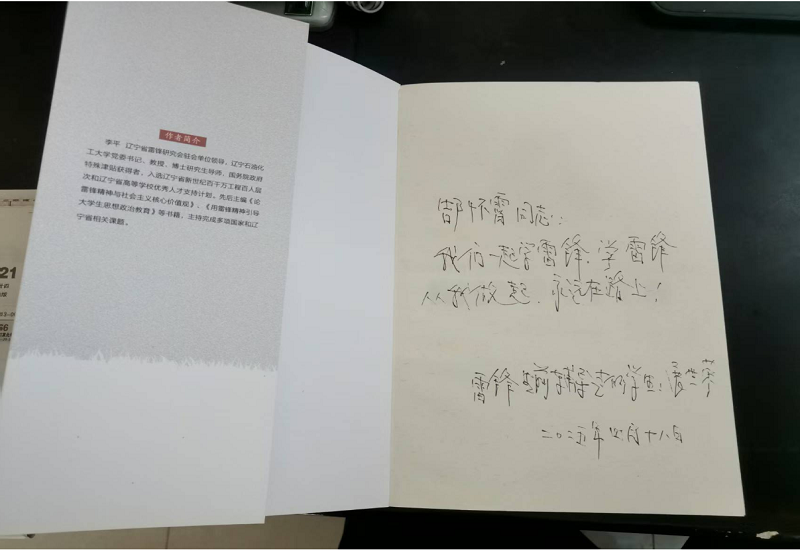 作者简介
李平 辽宁省雷锋研究会驻会单位领导，辽宁石油化
工大学党委书记、教授、博士研究生导师，国务院政府
特殊津贴获得者，入选辽宁省新世纪百千万工程百人层
次和辽宁省高等学校优秀人才支持计划。先后主编《论
雷锋精神与社会主义核心价值观》、《用雷锋精神引导
大学生思想政治教育》等书籍，主持完成多项国家和辽
宁省相关课题。
21
怀霄同志：
我们一起学雷锋，学雷锋
从我做起，永远在路上！
雷锋生前辅导过的学生：
二〇二五年四月十八日